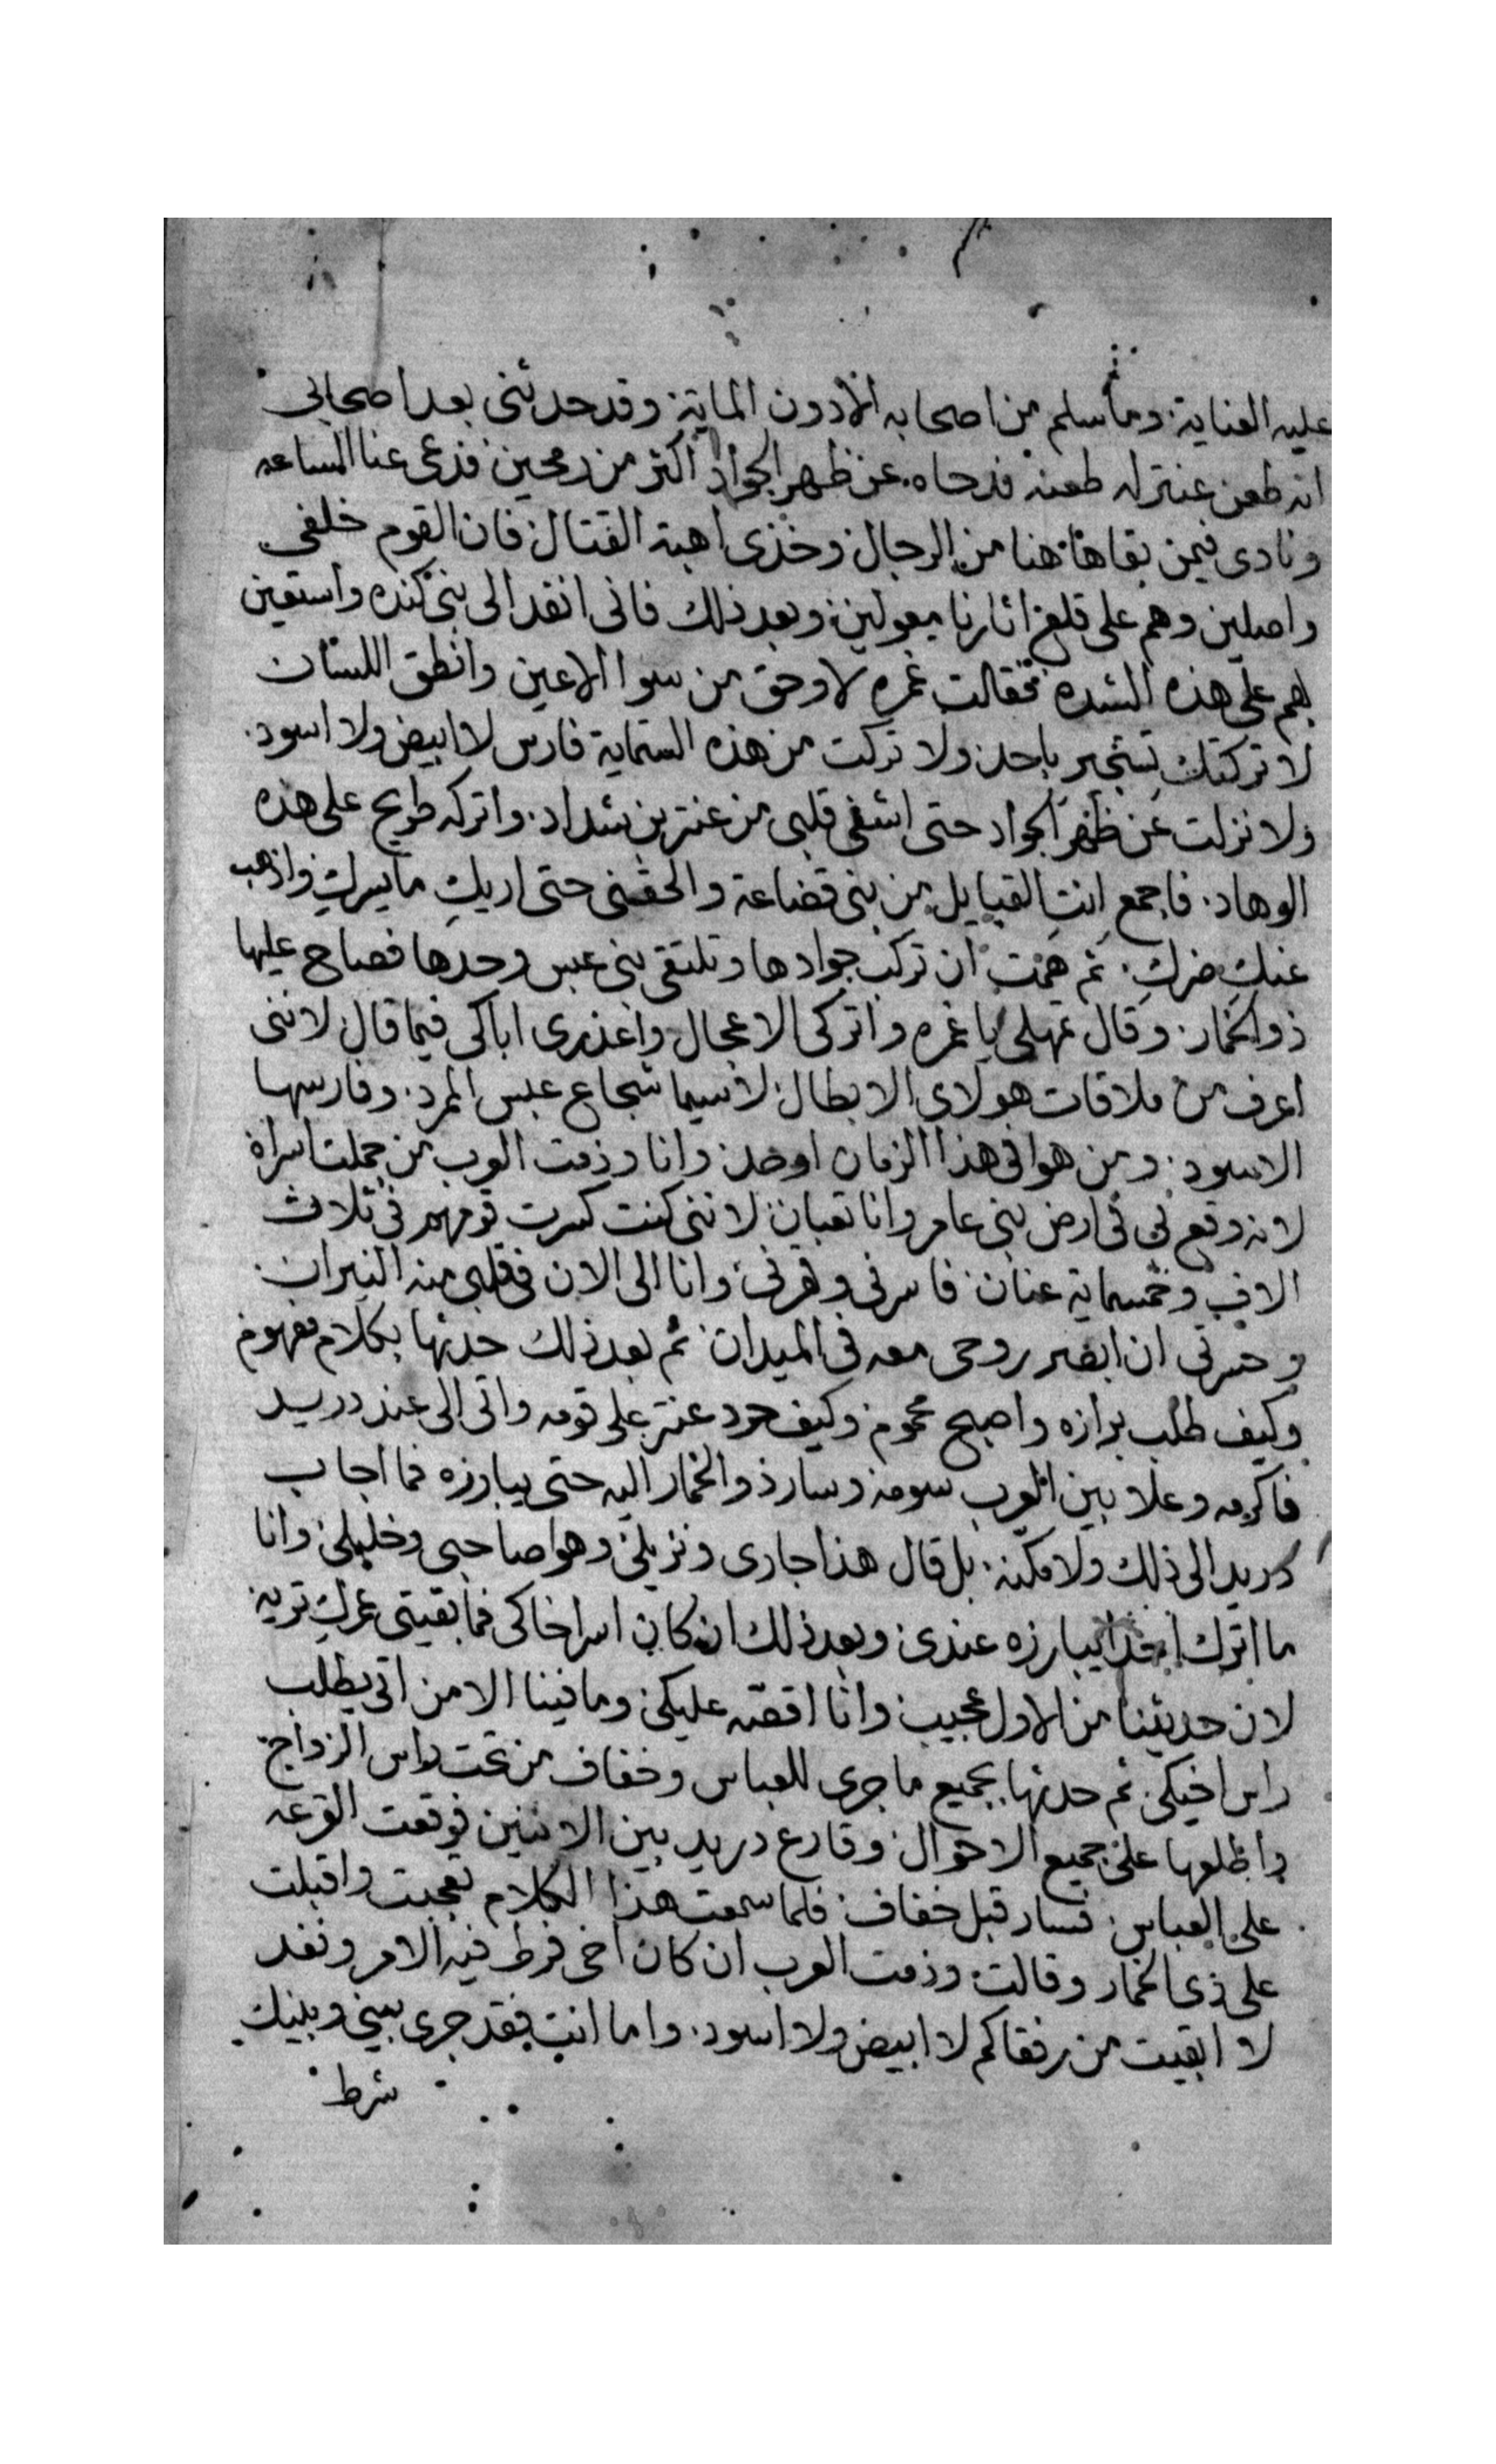 عليه العناية وما سلم من اصحابه الا دون الماية وقد حدثني بعد اصحابي
انه طعن عنتر له طعنه فدحاه عن ظهر الجواد اكثر من رمحين فدعي عنا الساعه
ونادى فيمن بقا هاهنا من الرجال وخذى اهبة القتال فان القوم خلفي
واصلين وهم على قلع اثارنا معولين وبعد ذلك فاني انفد الى بني كنده واستعين
بهم على هذه الشدة فقالت غمره لا وحق من سوا الاعين وانطق اللسان
لا تركتك تستجير باحد ولا تركت من هذه الستماية فارس لا ابيض ولا اسود
ولا نزلت عن ظهر الجواد حتى اشفي قلبى من عنتر بن شداد واتركه طريح على هذه
الوهاد فاجمع انت القبايل من بنى قضاعة والحقني حتى اريك ما يسرك واذهب
عنك ضرك ثم همت ان تركب جوادها وتلتقي بني عبس وحدها فصاح عليها
ذو الخمار وقال تمهلي يا غمره واتركى الاعجال واعذرى اباكى فيما قال لانني
اعرف من ملاقات هولاى الابطال لاسيما شجاع عبس المرد وفارسها
الاسود ومن هوا في هذا الزمان اوحد وانا وذمت العرب من جملت اسراه
لانه وقع بي في ارض بني عامر وانا تعبان لانني كنت كسرت قومهم في ثلاث
الاف وخمسماية عنان فاسرني وقهرني وانا الى الان في قلبي منه النيران
وحسرتي ان ابصر روحي معه في الميدان ثم بعد ذلك حدثها بكلام مفهوم
وكيف طلب برازه واصبح محموم وكيف حرد عنتر على قومه واتى الى عند دريد
فاكرمه وعلا بين العرب سومه وسار ذو الخمار اليه حتى يبارزه فما اجاب
دريد الى ذلك ولا مكنه بل قال هذا جارى ونزيلي وهوا صاحبي وخليلي وانا
ما اترك احدا يبارزه عندى وبعد ذلك ان كان اسر اخاكى فما بقيتى عمرك تريه
لان حديثنا من الاول عجيب وانا اقصه عليكي وما فينا الا من اتى يطلب
راس اخيكى ثم حدثها بجميع ما جرى للعباس وخفاف من تحت راس الزواج
واطلعها على جميع الاحوال وقارع دريد بين الاثنين فوقعت القرعه
على العباس فسار قبل خفاف فلما سمعت هذا الكلام تعجبت واقبلت
على ذى الخمار وقالت وذمت العرب ان كان اخى فرط فيه الامر ونفد
لا ابقيت من رفقاكم لا ابيض ولا اسود واما انت فقد جرى بيني وبينك
شرط